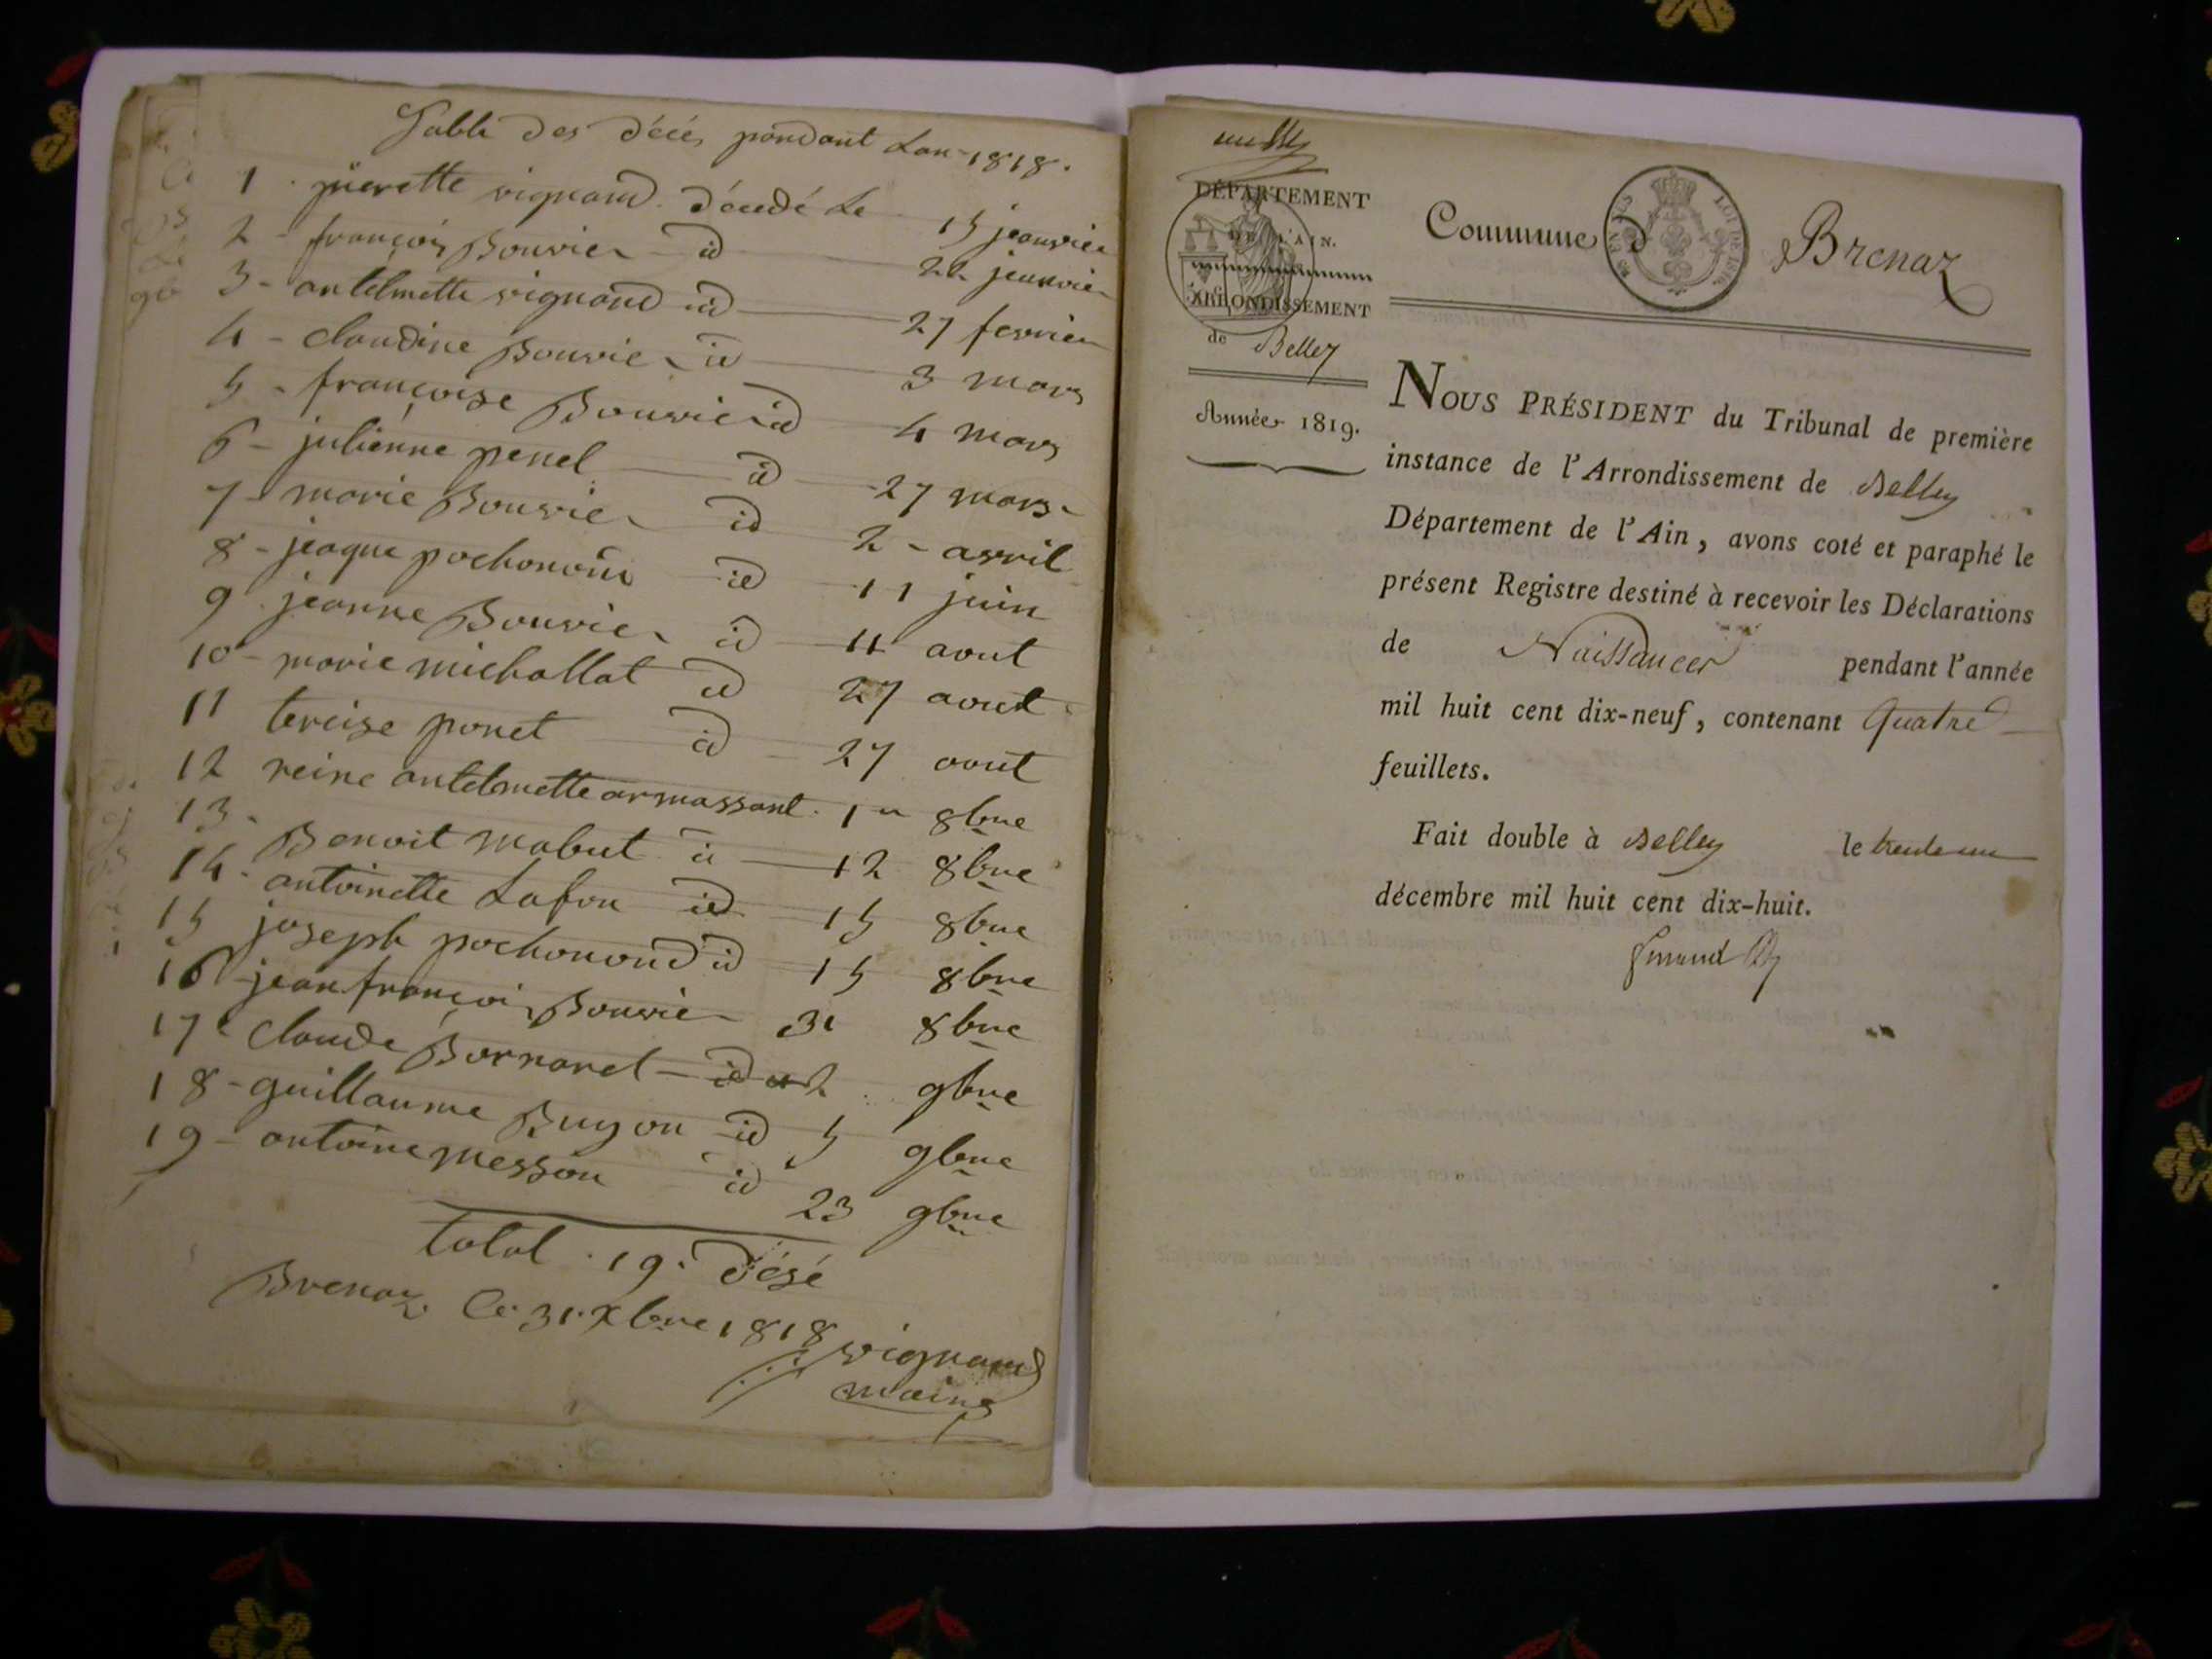 Table des décés pendant Lan 1818.
1 pierette vignand décedé Le 15 jeanvier
2 - françois Bouvier id 22 jeanvier
3 - antelmette vignand id 27 fevrier
4 - claudine Bouvier id 3 mars
5 - françoise Bouvier id 4 mars
6 - julienne penel id 27 mars
7 - marie Bouvier id 2 - avril
8 - jeaque pochonond id 11 juin
9 jeanne Bouvier id 11 aout
10 - marie michallat id 27 aout
11 tereise ponet id 27 aout
12 reine antelmette armassant 1er 8bre
13 - Benoit mabut id 12 8bre
14 - antoinette Lafon id 15 8bre
15 joseph pochonond id 15 8bre
16 - jean françois Bouvier 31 8bre
17 claude Bornarel id 2 9bre
18 - guillaume Bugon id 5 9bre
19 - antoine messon id 23 9bre
total 19 désé
Brenaz Le 31 Xbre 1818
vignand
maire
DÉPARTEMENT
DE L'AIN.
ARRONDISSEMENT
de Belley
Année 1819.
Commune d Brenaz
LOI DE 1816.
NOUS PRÉSIDENT du Tribunal de première
instance de l'Arrondissement de Belley
Département de l'Ain, avons coté et paraphé le
présent Registre destiné à recevoir les Déclarations
de Naissances pendant l'année
mil huit cent dix-neuf, contenant Quatre
feuillets.
Fait double à Belley le trente un
décembre mil huit cent dix-huit.